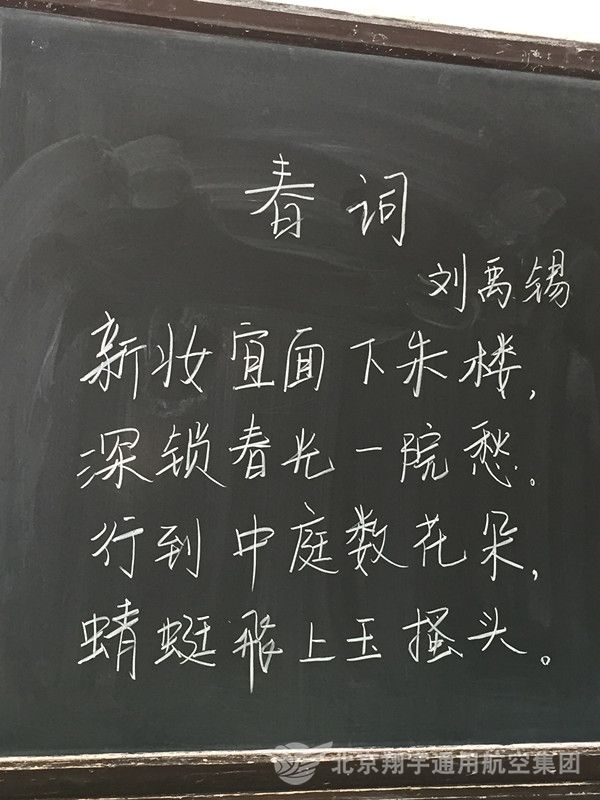 春词
刘禹锡
新妆宜面下朱楼,
深锁春光一院愁。
行到中庭数花朵,
蜻蜓飛上玉搔头。
北京翔宇通用航空集团